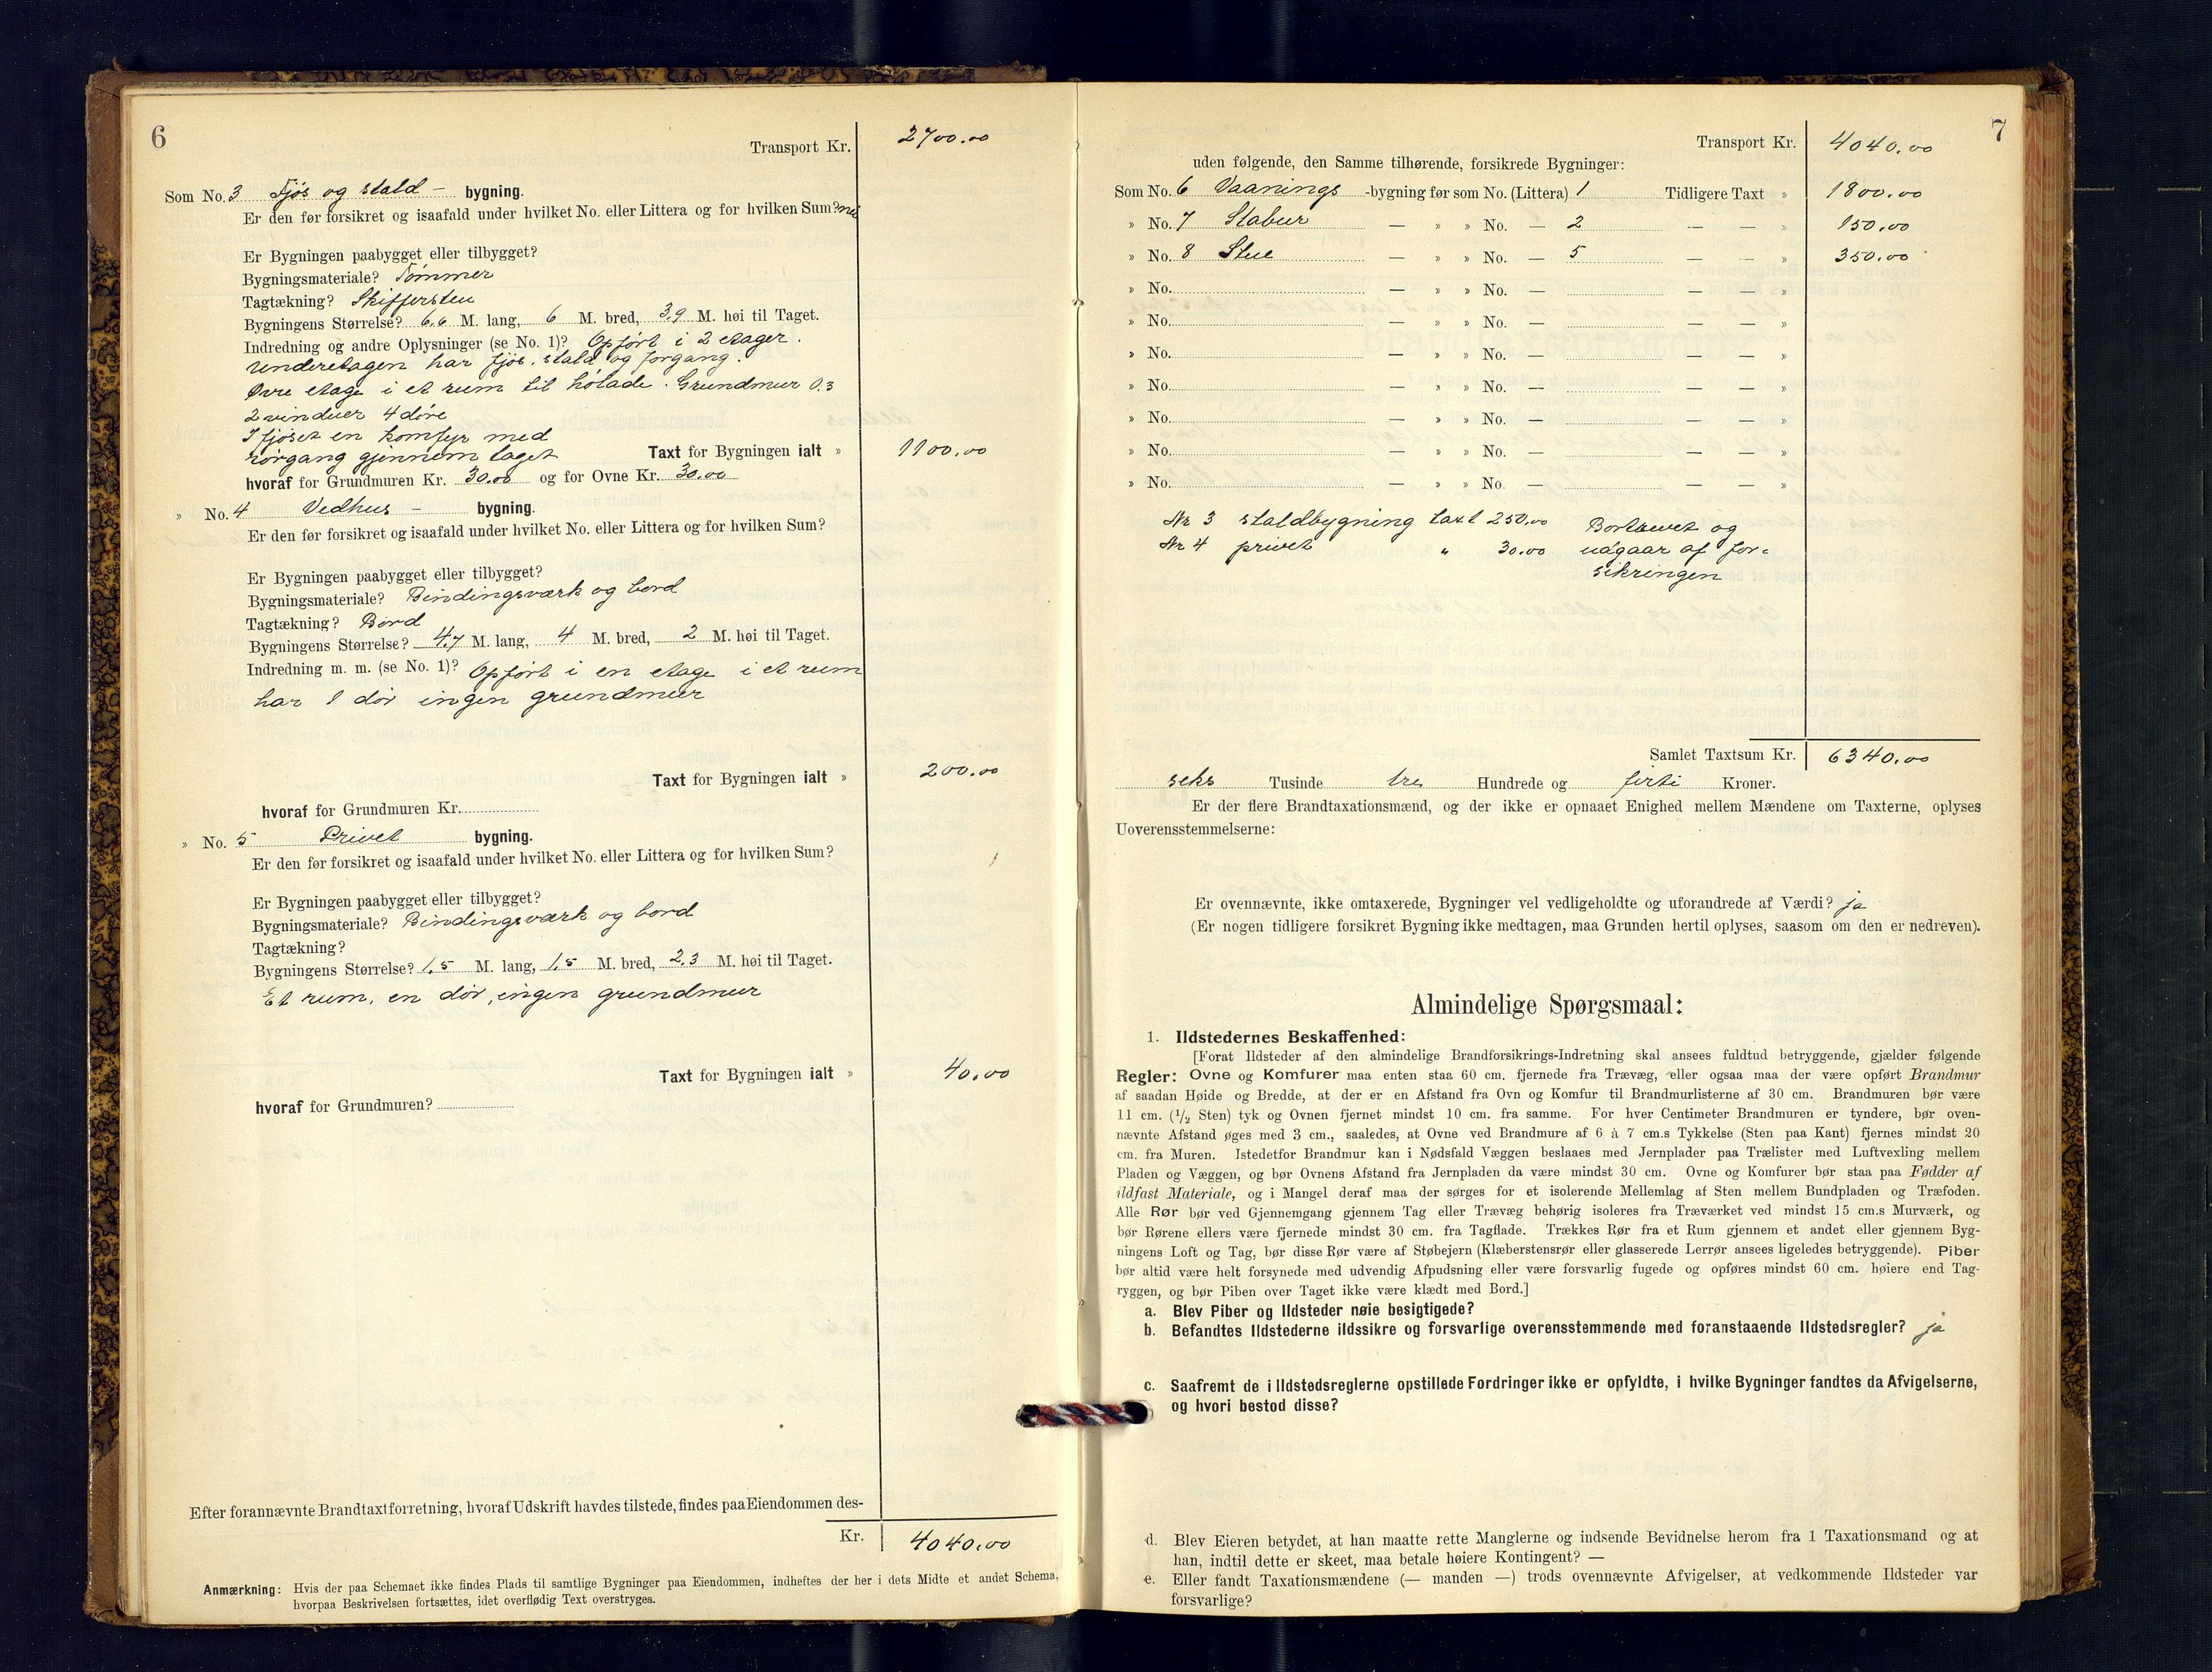 6
Transport Kr. 2700.00
Som No. 3 Fjös og stald – bygning.
Er den før forsikret og isaafald under hvilket No. eller Littera og for hvilken Sum? nei
Er Bygningen paabygget eller tilbygget?
Bygningsmateriale? Tömmer
Tagtækning? Skiffersten
Bygningens Størrelse? 6,6 M. lang, 6 M. bred, 3,9 M. høi til Taget.
Indredning og andre Oplysninger (se No. 1)? Opfört i 2 etager.
Underetagen har fjös, stald og forgang.
Øvre etage i et rum til hölade. Grundmur 0.3
2 vinduer 4 döre
I fjöset en komfyr med
rörgang gjennem taget Taxt for Bygningen ialt » 1100.00
hvoraf for Grundmuren Kr. 30.00 og for Ovne Kr. 30.00
» No. 4 Vedhus – bygning.
Er den før forsikret og isaafald under hvilket No. eller Littera og for hvilken Sum?
Er Bygningen paabygget eller tilbygget?
Bygningsmateriale? Bindingsværk og bord
Tagtækning? Bord
Bygningens Størrelse? 4,7 M. lang, 4 M. bred, 2 M. høi til Taget.
Indredning m. m. (se No. 1)? Opfört i en etage i et rum
har 1 dör ingen grundmur
Taxt for Bygningen ialt » 200.00
hvoraf for Grundmuren Kr.
» No. 5 Privet bygning.
Er den før forsikret og isaafald under hvilket No. eller Littera og for hvilken Sum?
Er Bygningen paabygget eller tilbygget?
Bygningsmateriale? Bindingsværk og bord
Tagtækning?
Bygningens Størrelse? 1,5 M. lang, 1,5 M. bred, 2,3 M. høi til Taget.
Et rum, en dör, ingen grundmur
Taxt for Bygningen ialt » 40.00
hvoraf for Grundmuren?
Efter forannævnte Brandtaxtforretning, hvoraf Udskrift havdes tilstede, findes paa Eiendommen des-
Kr. 4040.00
Anmærkning: Hvis der paa Schemaet ikke findes Plads til samtlige Bygninger paa Eiendommen, indheftes der her i dets Midte et andet Schema,
hvorpaa Beskrivelsen fortsættes, idet overflødig Text overstryges.
7
Transport Kr. 4040.00
uden følgende, den Samme tilhørende, forsikrede Bygninger:
Som No. 6 Vaanings -bygning før som No. (Littera) 1 Tidligere Taxt » 1800.00
» No. 7 Stabur — » » No. — 2 — — » 150.00
» No. 8 Stue — » » No. — 5 — — » 350.00
» No. — » » No. — — — »
» No. — » » No. — — — »
» No. — » » No. — — — »
» No. — » » No. — — — »
» No. — » » No. — — — »
» No. — » » No. — — — »
» No. — » » No. — — — »
Nr 3 staldbygning taxt 250.00 Bortrevet og
Nr 4 privet " 30.00 udgaar af for-
sikringen
Samlet Taxtsum Kr. 6340.00
seks Tusinde tre Hundrede og firti Kroner.
Er der flere Brandtaxationsmænd, og der ikke er opnaaet Enighed mellem Mændene om Taxterne, oplyses
Uoverensstemmelserne:
Er ovennævnte, ikke omtaxerede, Bygninger vel vedligeholdte og uforandrede af Værdi? ja
(Er nogen tidligere forsikret Bygning ikke medtagen, maa Grunden hertil oplyses, saasom om den er nedreven).
Almindelige Spørgsmaal:
1. Ildstedernes Beskaffenhed:
[Forat Ildsteder af den almindelige Brandforsikrings-Indretning skal ansees fuldtud betryggende, gjælder følgende
Regler: Ovne og Komfurer maa enten staa 60 cm. fjernede fra Trævæg, eller ogsaa maa der være opført Brandmur
af saadan Høide og Bredde, at der er en Afstand fra Ovn og Komfur til Brandmurlisterne af 30 cm. Brandmuren bør være
11 cm. (1/2 Sten) tyk og Ovnen fjernet mindst 10 cm. fra samme. For hver Centimeter Brandmuren er tyndere, bør oven-
nævnte Afstand øges med 3 cm., saaledes, at Ovne ved Brandmure af 6 à 7 cm.s Tykkelse (Sten paa Kant) fjernes mindst 20
cm. fra Muren. Istedetfor Brandmur kan i Nødsfald Væggen beslaaes med Jernplader paa Trælister med Luftvexling mellem
Pladen og Væggen, og bør Ovnens Afstand fra Jernpladen da være mindst 30 cm. Ovne og Komfurer bør staa paa Fødder af
ildfast Materiale, og i Mangel deraf maa der sørges for et isolerende Mellemlag af Sten mellem Bundpladen og Træfoden.
Alle Rør bør ved Gjennemgang gjennem Tag eller Trævæg behørig isoleres fra Træværket ved mindst 15 cm.s Murværk, og
bør Rørene ellers være fjernede mindst 30 cm. fra Tagflade. Trækkes Rør fra et Rum gjennem et andet eller gjennem Byg-
ningens Loft og Tag, bør disse Rør være af Støbejern (Klæberstensrør eller glasserede Lerrør ansees ligeledes betryggende). Piber
bør altid være helt forsynede med udvendig Afpudsning eller være forsvarlig fugede og opføres mindst 60 cm. høiere end Tag-
ryggen, og bør Piben over Taget ikke være klædt med Bord.]
a. Blev Piber og Ildsteder nøie besigtigede?
b. Befandtes Ildstederne ildssikre og forsvarlige overensstemmende med foranstaaende Ildstedsregler? ja
c. Saafremt de i Ildstedsreglerne opstillede Fordringer ikke er opfyldte, i hvilke Bygninger fandtes da Afvigelserne,
og hvori bestod disse?
d. Blev Eieren betydet, at han maatte rette Manglerne og indsende Bevidnelse herom fra 1 Taxationsmand og at
han, indtil dette er skeet, maa betale høiere Kontingent? —
e. Eller fandt Taxationsmændene (— manden —) trods ovennævnte Afvigelser, at vedkommende Ildsteder var
forsvarlige?